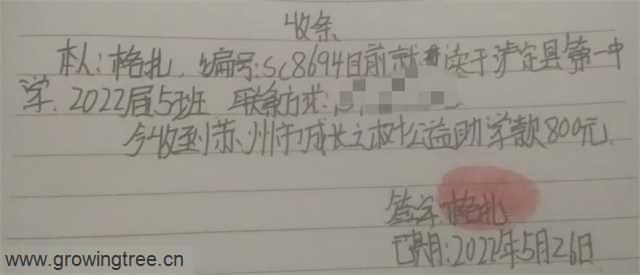 收条
本人:格扎,编号:SC8694目前就读于泸定县第一中
学.2022届5班 联系方式:
今收到苏州市成长之树公益助学款800元.
签字 格扎
日期:2022年5月26日
www.growingtree.cn